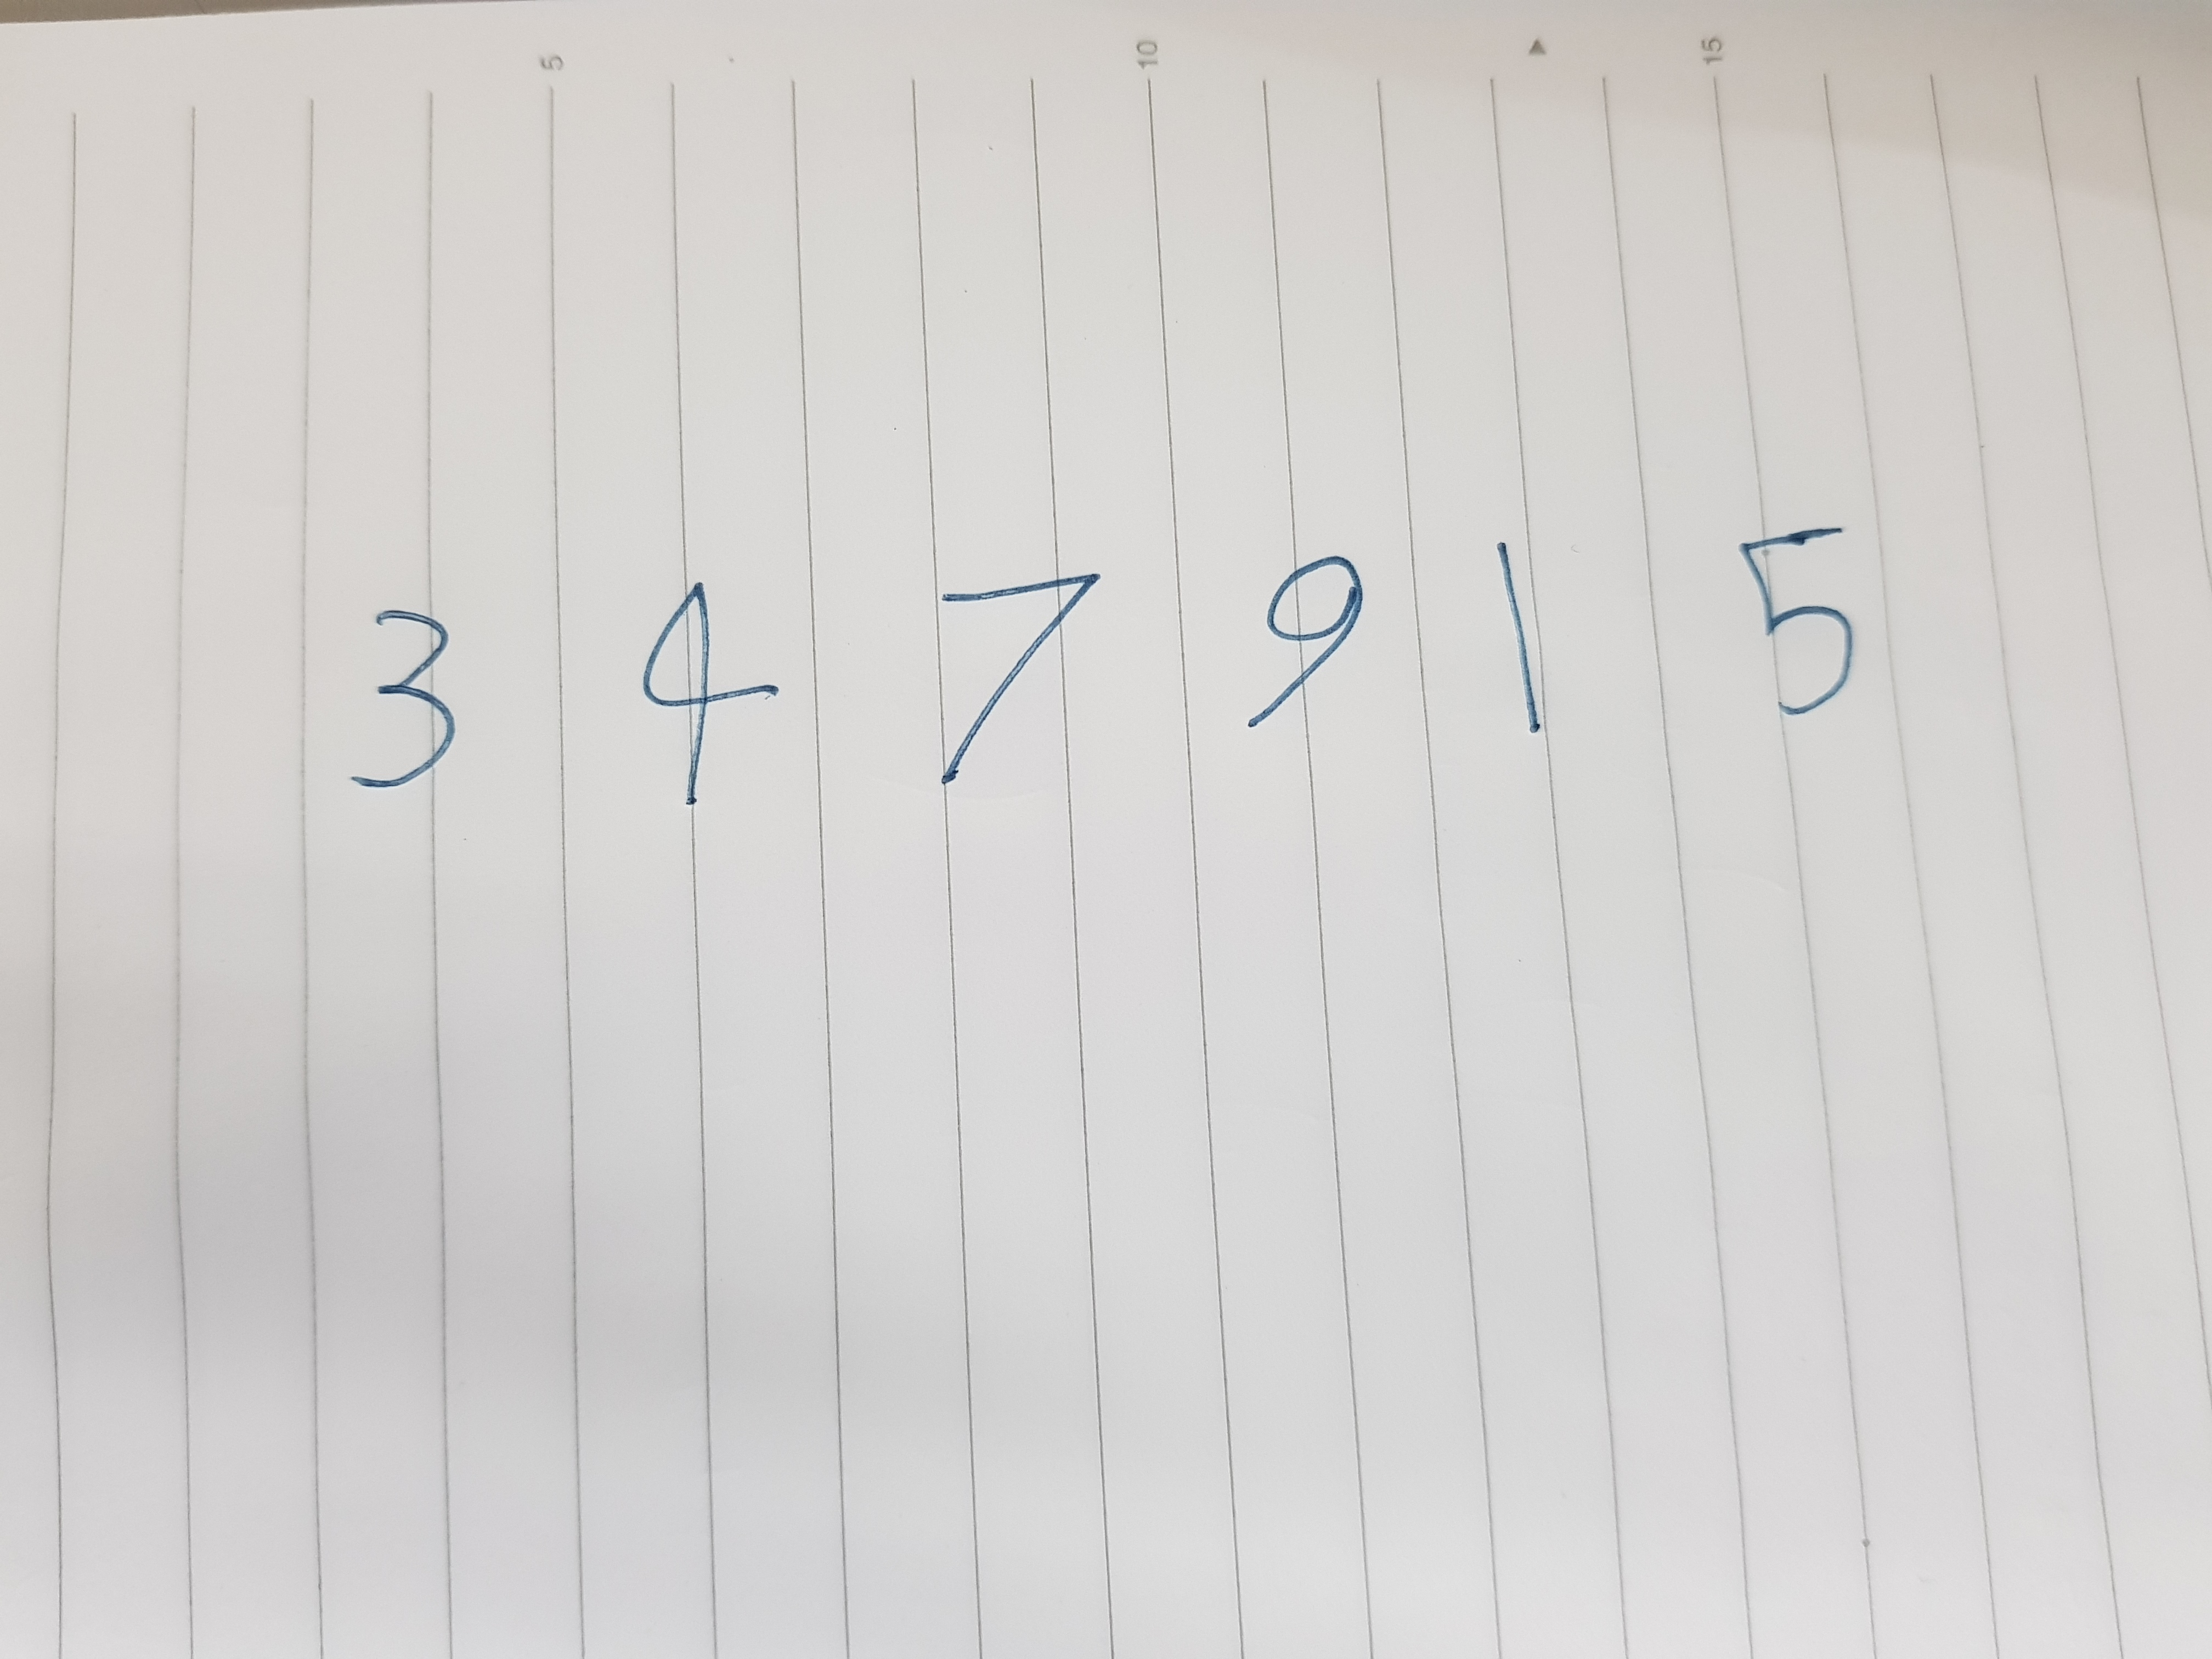 5 10 ▲ 15
3 4 7 9 1 5